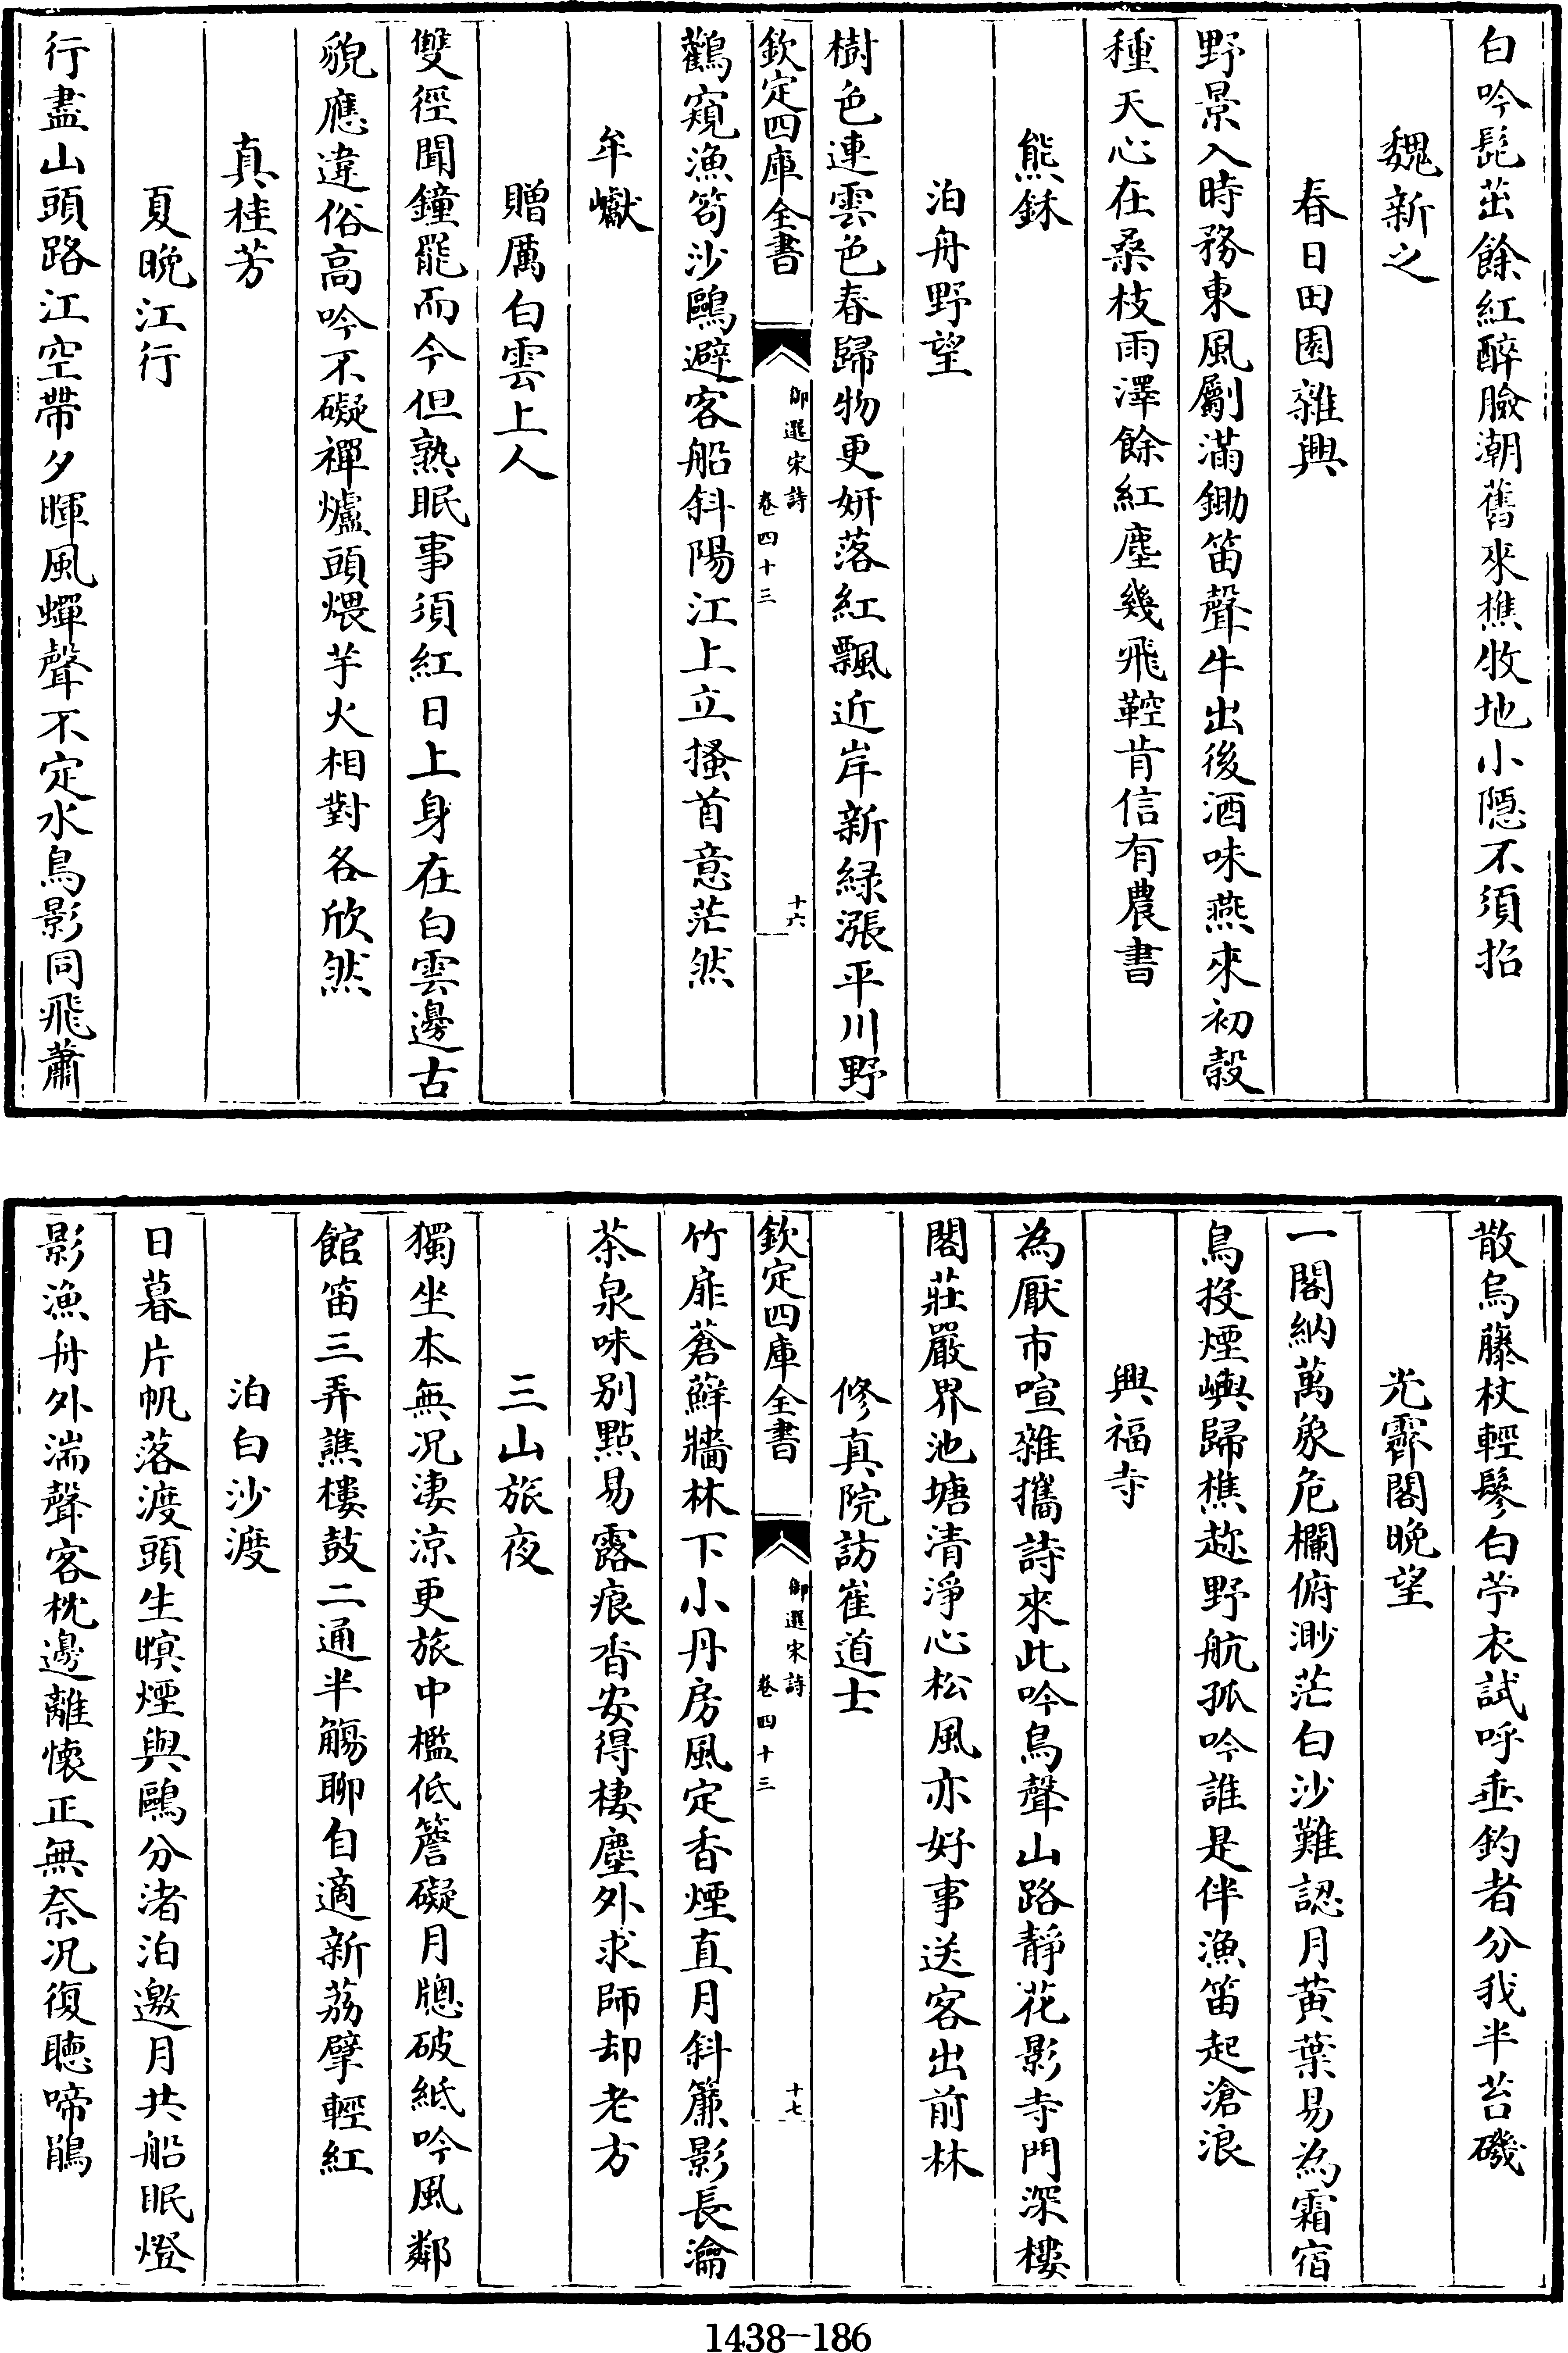 白吟髭茁餘紅醉臉潮舊來樵牧地小隱不須招
魏新之
春日田園雜興
野景入時務東風劚滿鋤笛聲牛出後酒味燕來初穀
種天心在桑枝雨澤餘紅塵幾飛鞚肯信有農書
熊鉌
泊舟野望
樹色連雲色春歸物更妍落紅飄近岸新緑漲平川野
欽定四庫全書
御選宋詩
卷四十三
十六
鸛窺漁笱沙鷗避客船斜陽江上立搔首意茫然
牟巘
贈厲白雲上人
雙徑聞鐘罷而今但熟眠事須紅日上身在白雲邊古
貌應違俗高吟不礙禪爐頭煨芋火相對各欣然
真桂芳
夏晚江行
行盡山頭路江空帶夕暉風蟬聲不定水鳥影同飛蕭
散烏藤杖輕鬆白苧衣試呼垂釣者分我半苔磯
光霽閣晚望
一閣納萬象危欄俯渺茫白沙難認月黄葉易為霜宿
鳥投煙嶼歸樵趂野航孤吟誰是伴漁笛起滄浪
興福寺
為厭市喧雜攜詩來此吟鳥聲山路靜花影寺門深樓
閣莊嚴界池塘清淨心松風亦好事送客出前林
修真院訪崔道士
竹扉蒼蘚牆林下小丹房風定香煙直月斜簾影長瀹
欽定四庫全書
御選宋詩
卷四十三
十七
茶泉味别點易露痕香安得棲塵外求師却老方
三山旅夜
獨坐本無况淒涼更旅中檻低簷礙月牕破紙吟風鄰
館笛三弄譙樓鼓二通半觴聊自適新荔擘輕紅
泊白沙渡
日暮片帆落渡頭生暝煙與鷗分渚泊邀月共船眠燈
影漁舟外湍聲客枕邊離懷正無奈况復聴啼鵑
1438-186